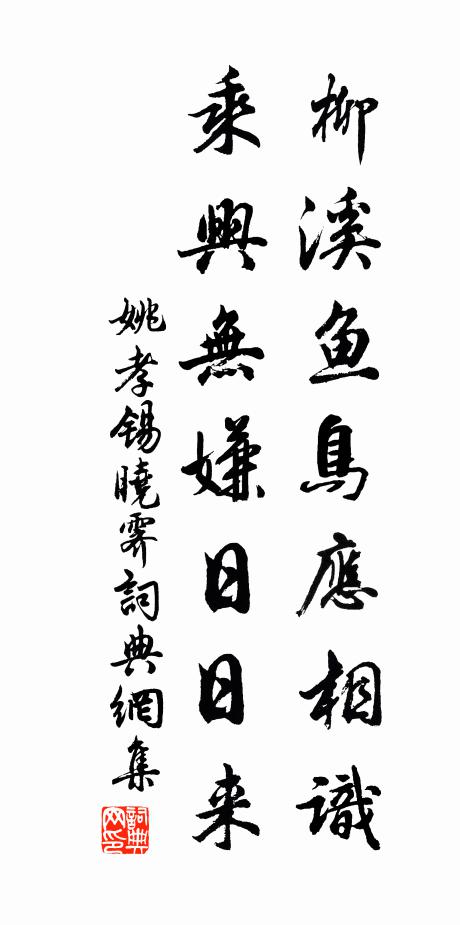 柳溪鱼鳥應相識
乘興無嫌日日来
姚孝錫曉霽詞典網集
詞典网印